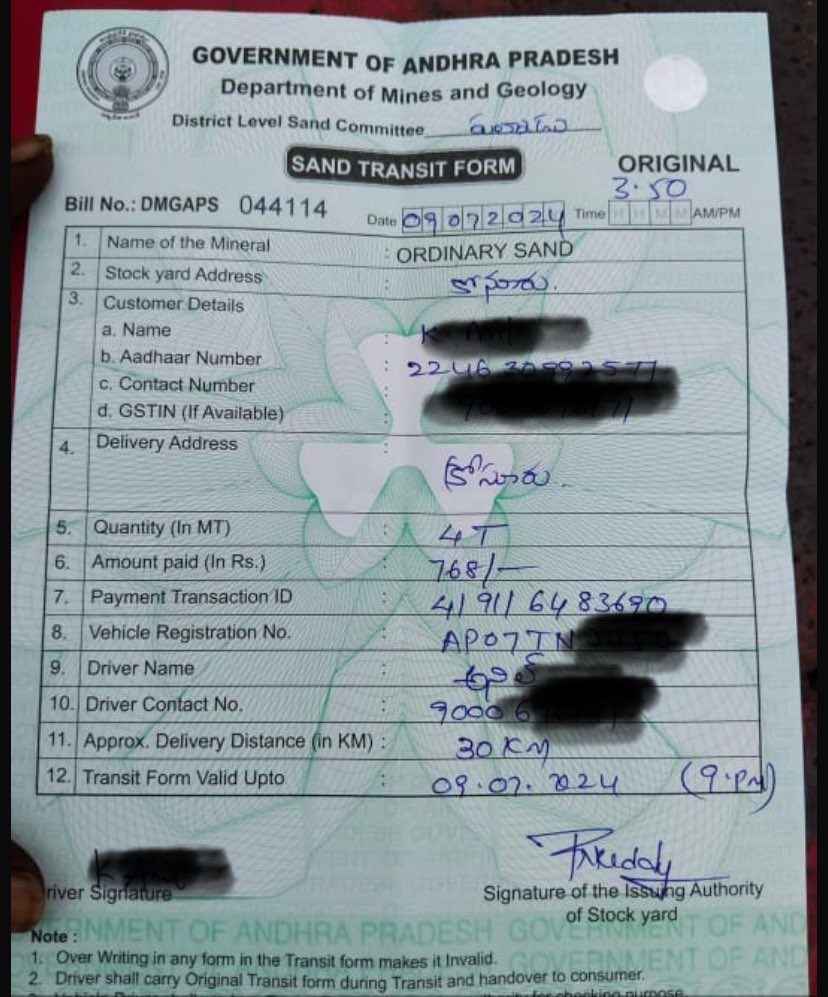 GOVERNMENT OF ANDHRA PRADESH
Department of Mines and Geology
District Level Sand Committee
SAND TRANSIT FORM
ORIGINAL
Bill No.: DMGAPS 044114
Date 09072024 Time 3.50 AM/PM
1. Name of the Mineral : ORDINARY SAND
2. Stock yard Address :
3. Customer Details
a. Name : K.
b. Aadhaar Number :
c. Contact Number :
d. GSTIN (If Available) :
4. Delivery Address :
5. Quantity (In MT) : 4T
6. Amount paid (In Rs.) : 768/-
7. Payment Transaction ID : 419116483690
8. Vehicle Registration No. : AP07TN
9. Driver Name :
10. Driver Contact No. : 9000
11. Approx. Delivery Distance (in KM) : 30 KM
12. Transit Form Valid Upto : 09.07.2024 (9.PM)
river Signature
Signature of the Issuing Authority
of Stock yard
RNMENT OF ANDHRA PRADESH GOVERNMENT OF AND
Note :
1. Over Writing in any form in the Transit form makes it Invalid.
2. Driver shall carry Original Transit form during Transit and handover to consumer.